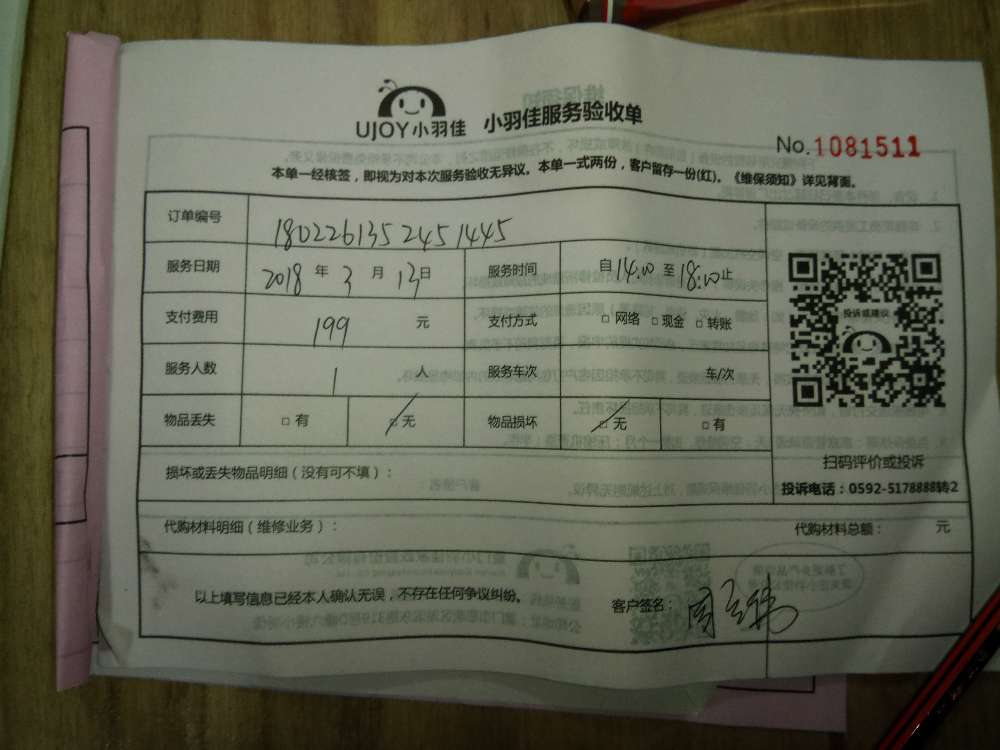 UJOY小羽佳 小羽佳服务验收单
No.1081511
本单一经核签，即视为对本次服务验收无异议。本单一式两份，客户留存一份(红)。《维保须知》详见背面。
订单编号 1802261352451445
服务日期 2018 年 3 月 13 日 服务时间 自 14:00 至 18:00 止
支付费用 199 元 支付方式 □ 网络 □ 现金 □ 转账
投诉或建议
服务人数 1 人 服务车次 车/次
物品丢失 □ 有 □ 无 物品损坏 □ 无 □ 有
扫码评价或投诉
损坏或丢失物品明细（没有可不填）：
投诉电话：0592-5178888转2
代购材料明细（维修业务）： 代购材料总额： 元
以上填写信息已经本人确认无误，不存在任何争议纠纷。 客户签名：